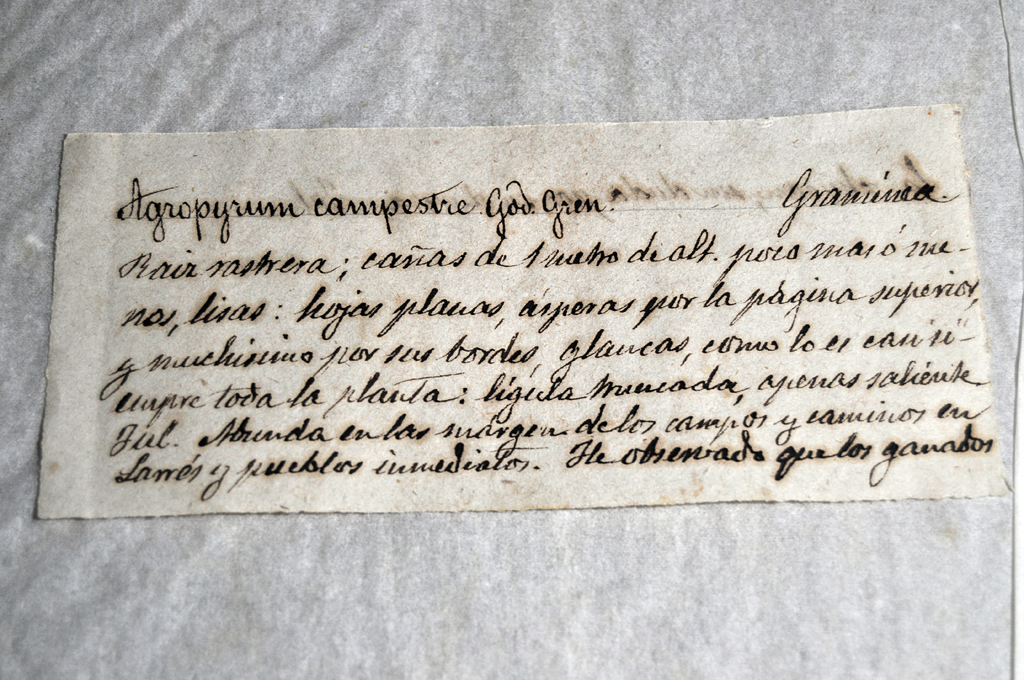 Agropyrum campestre God. Gren. Gramínea.
Raiz rastrera; cañas de 1 metro de alt. poco mas ó me-
nos, lisas: hojas planas, ásperas por la página superior,
y muchisimo por sus bordes, glaucas, como lo es casi si-
empre toda la planta: lígula truncada, apenas saliente
Jul. Abunda en las margen de los campos y caminos en
Larrés y pueblos inmediatos. He observado que los ganados